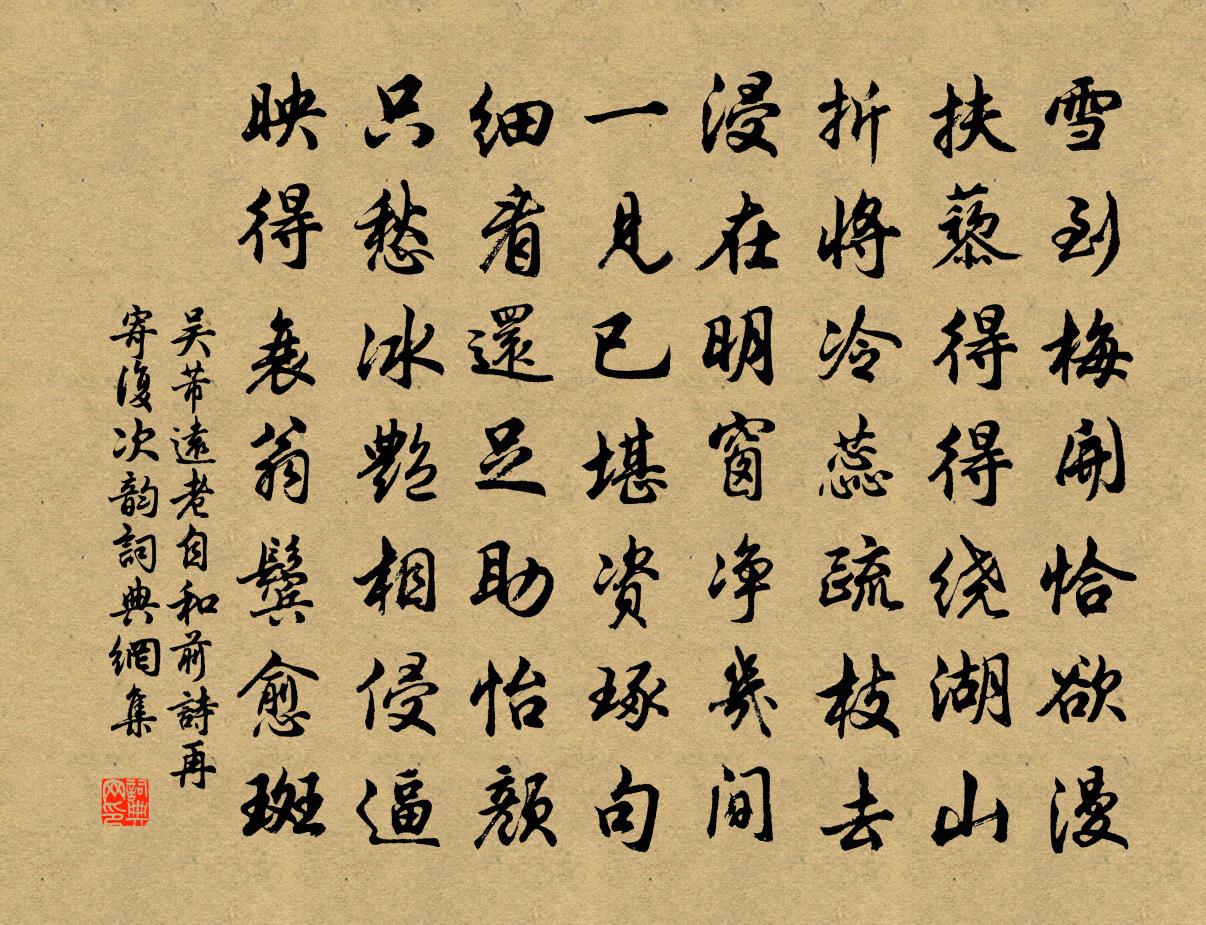 雪到梅開恰欲漫
扶藜得得绕湖山
折將冷蕊疏枝去
浸在明窗净几間
一見已堪资琢句
細看還足助怡顏
只愁冰艷相侵逼
映得衰翁鬓愈斑
吴芾遠老自和前詩再
寄復次韵詞典網集
詞典
网印